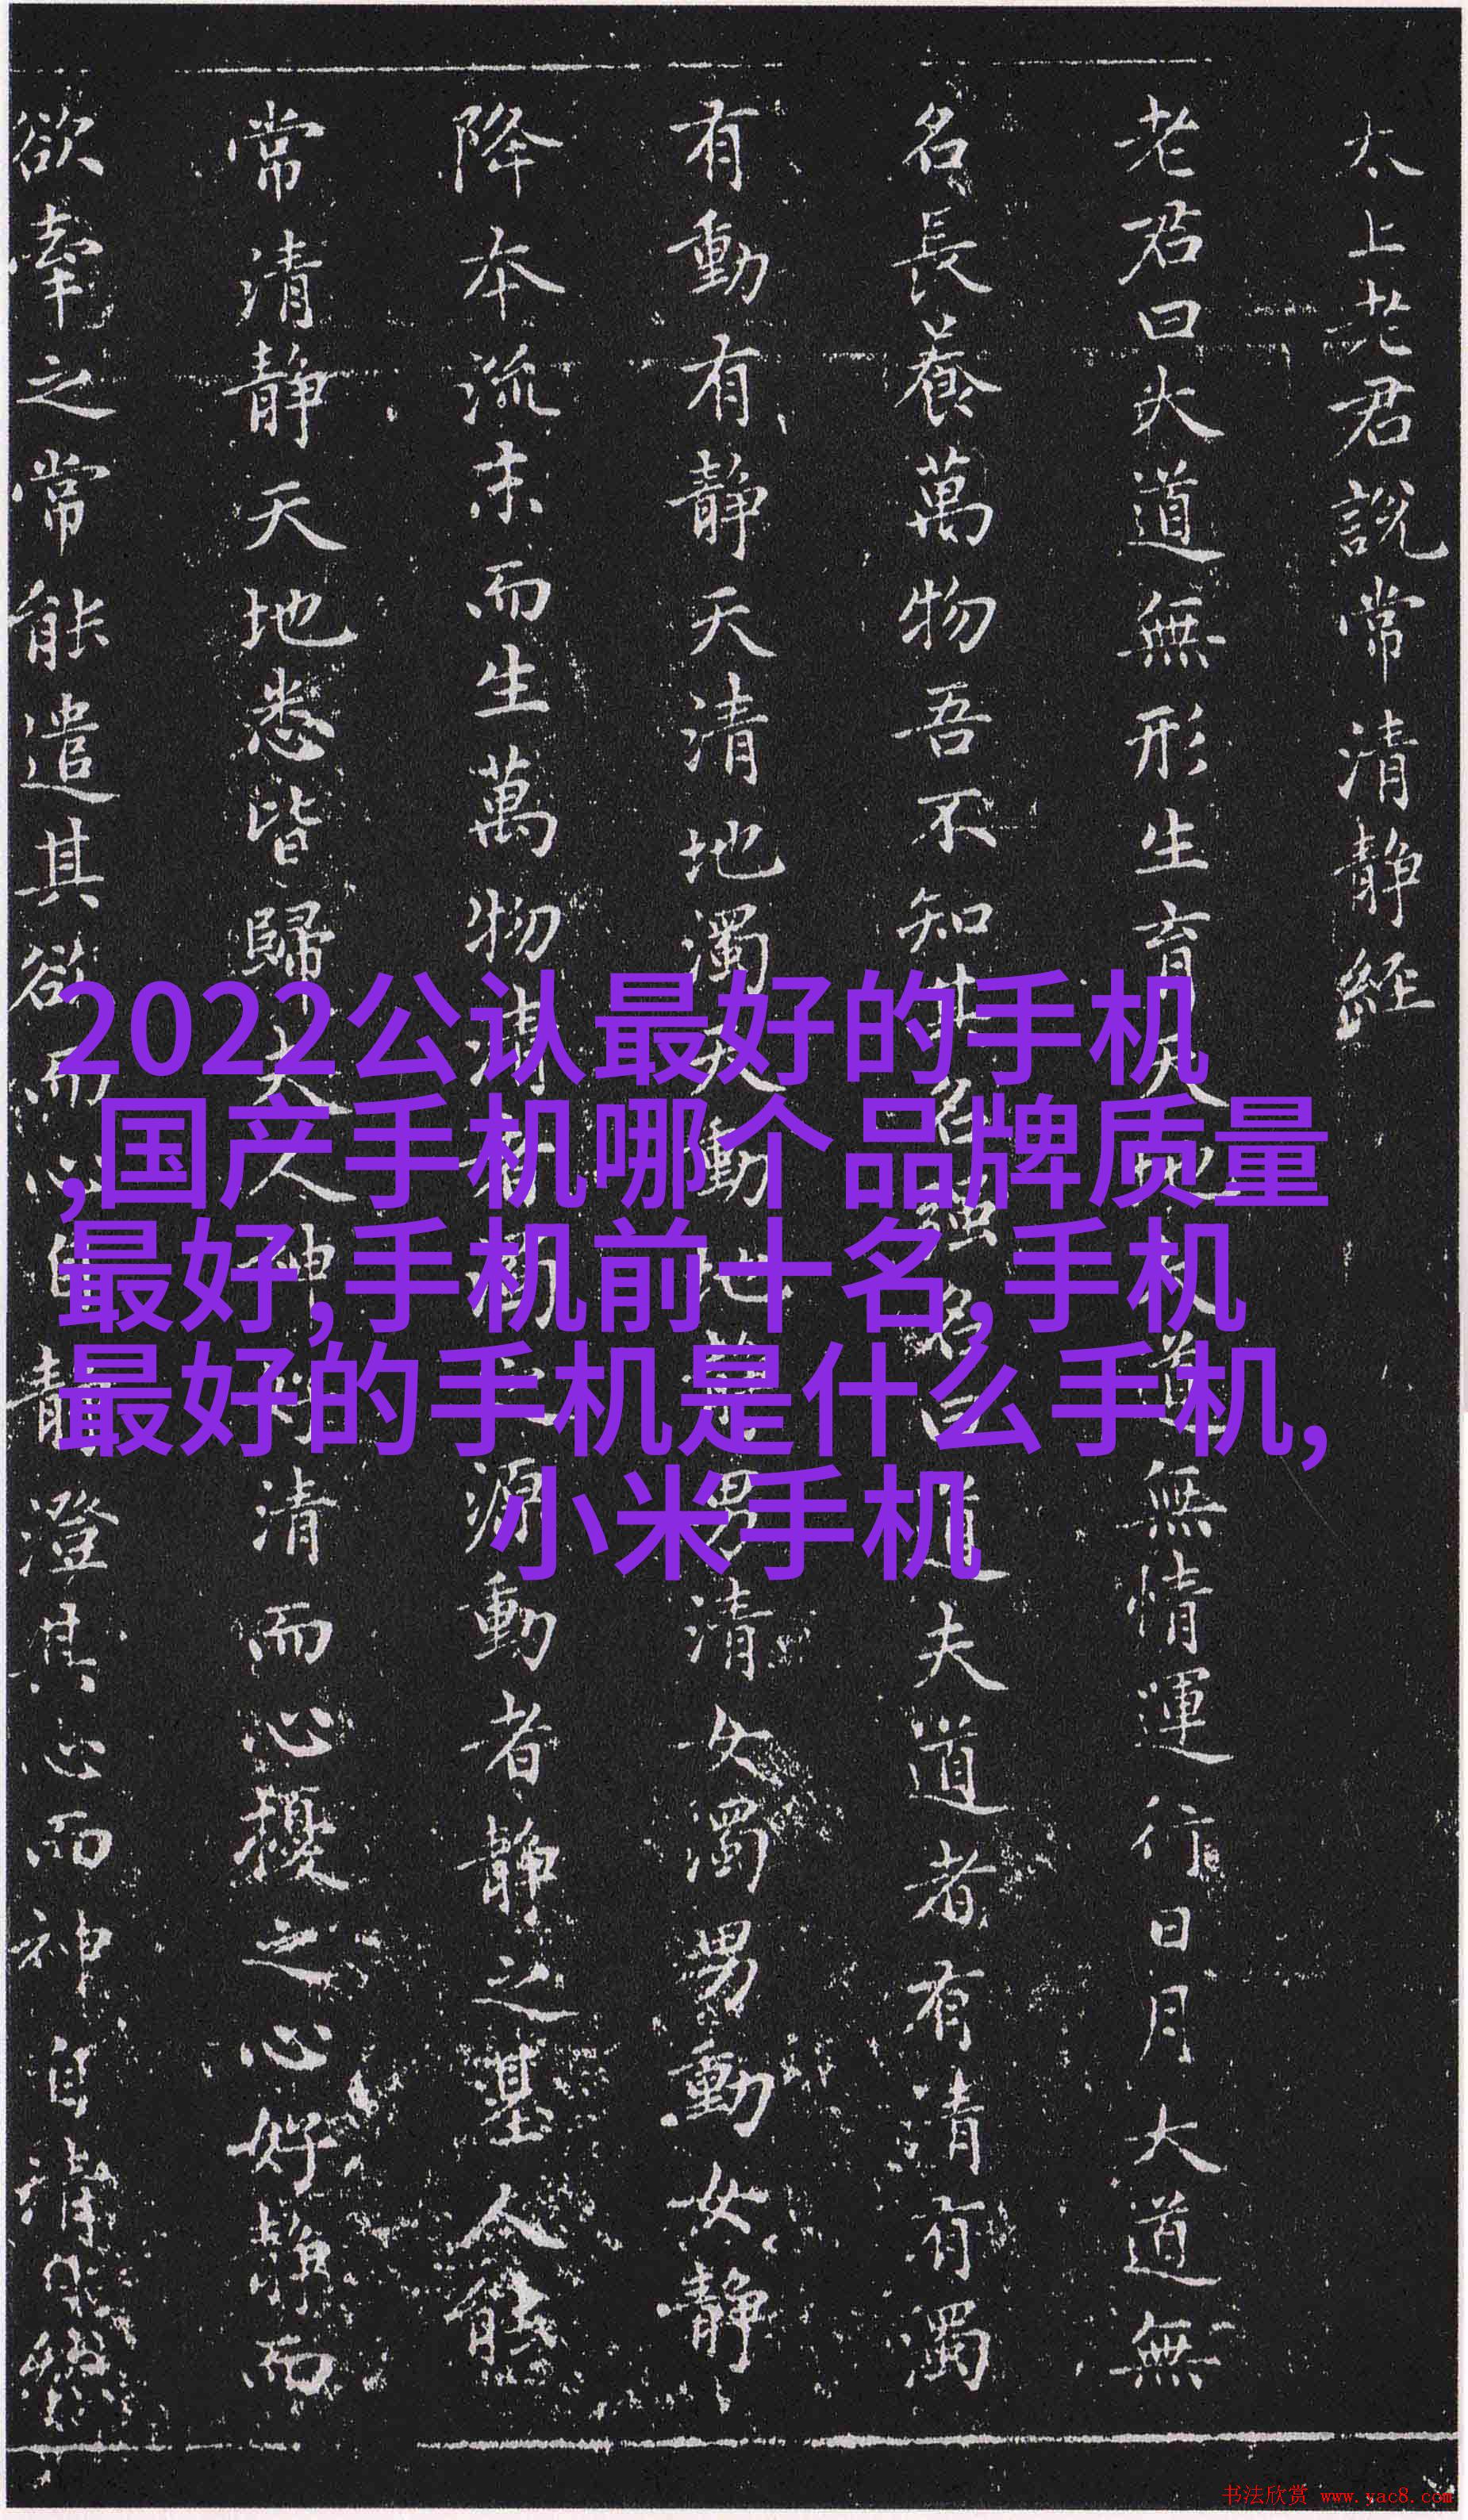 太上老君說常清靜經
老君曰大道無形生育天地大道無情運行日月大道無
名長養萬物吾不知其名強名曰道夫道者有清有濁
有動有靜天清地濁天動地靜男清女濁男動女靜
降本流末而生萬物清者濁之源動者靜之基人能
常清靜天地悉皆歸夫人神好清而心擾之心好靜而
欲牽之常能遣其欲而心自靜澄其心而神自清
2022公认最好的手机
,国产手机哪个品牌质量
最好,手机前十名,手机
最好的手机是什么手机,
小米手机
书法欣赏 www.yac8.com